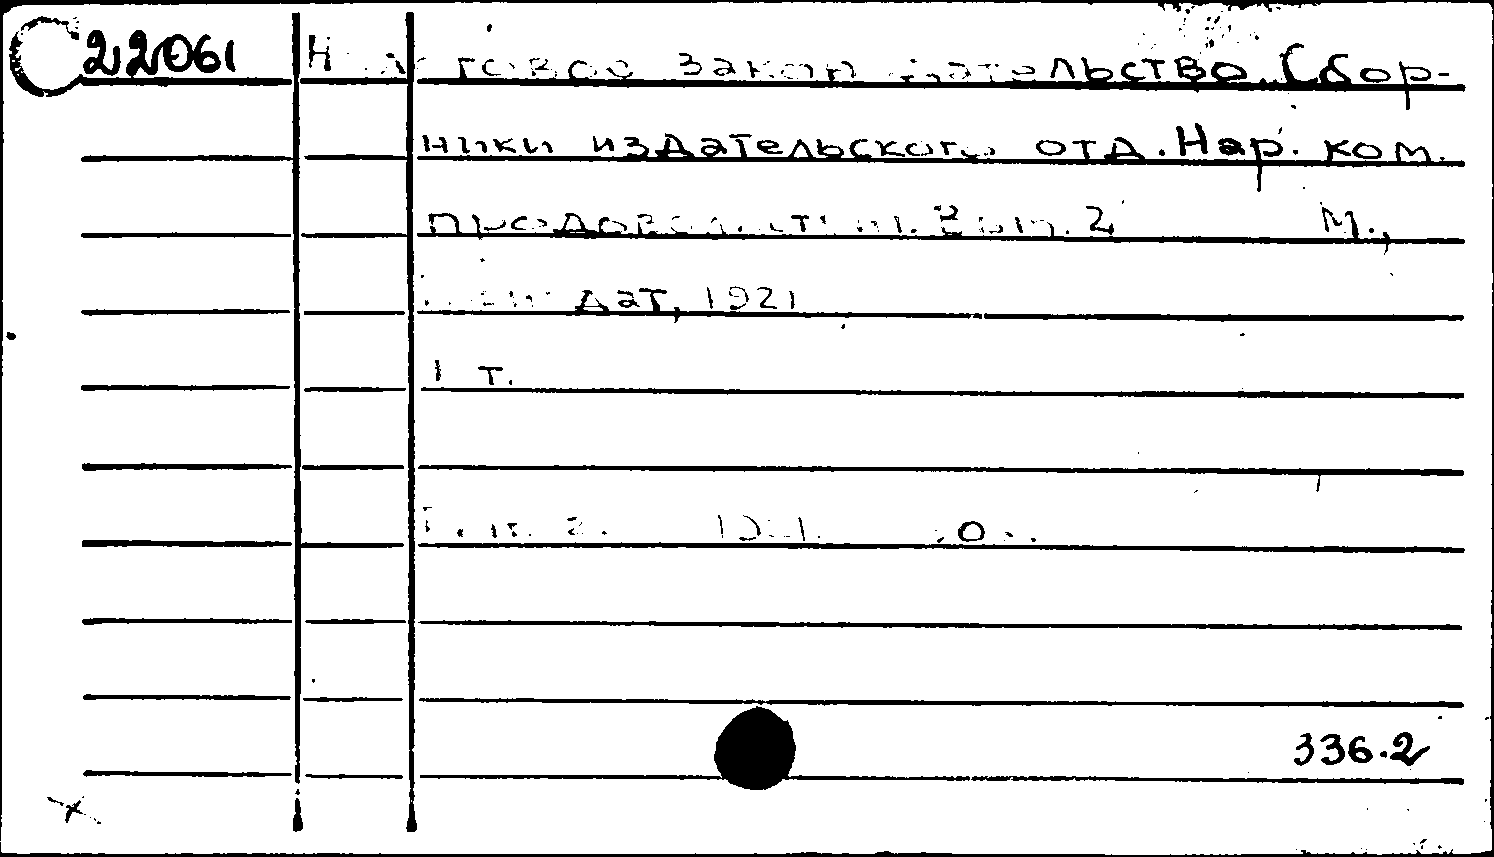 С 22061 Налоговое законодательство. Сбор-
ники издательского отд. Нар. ком.
продовольствия. Вып. 2 М.,
дат, 1921
1 т.
336.2